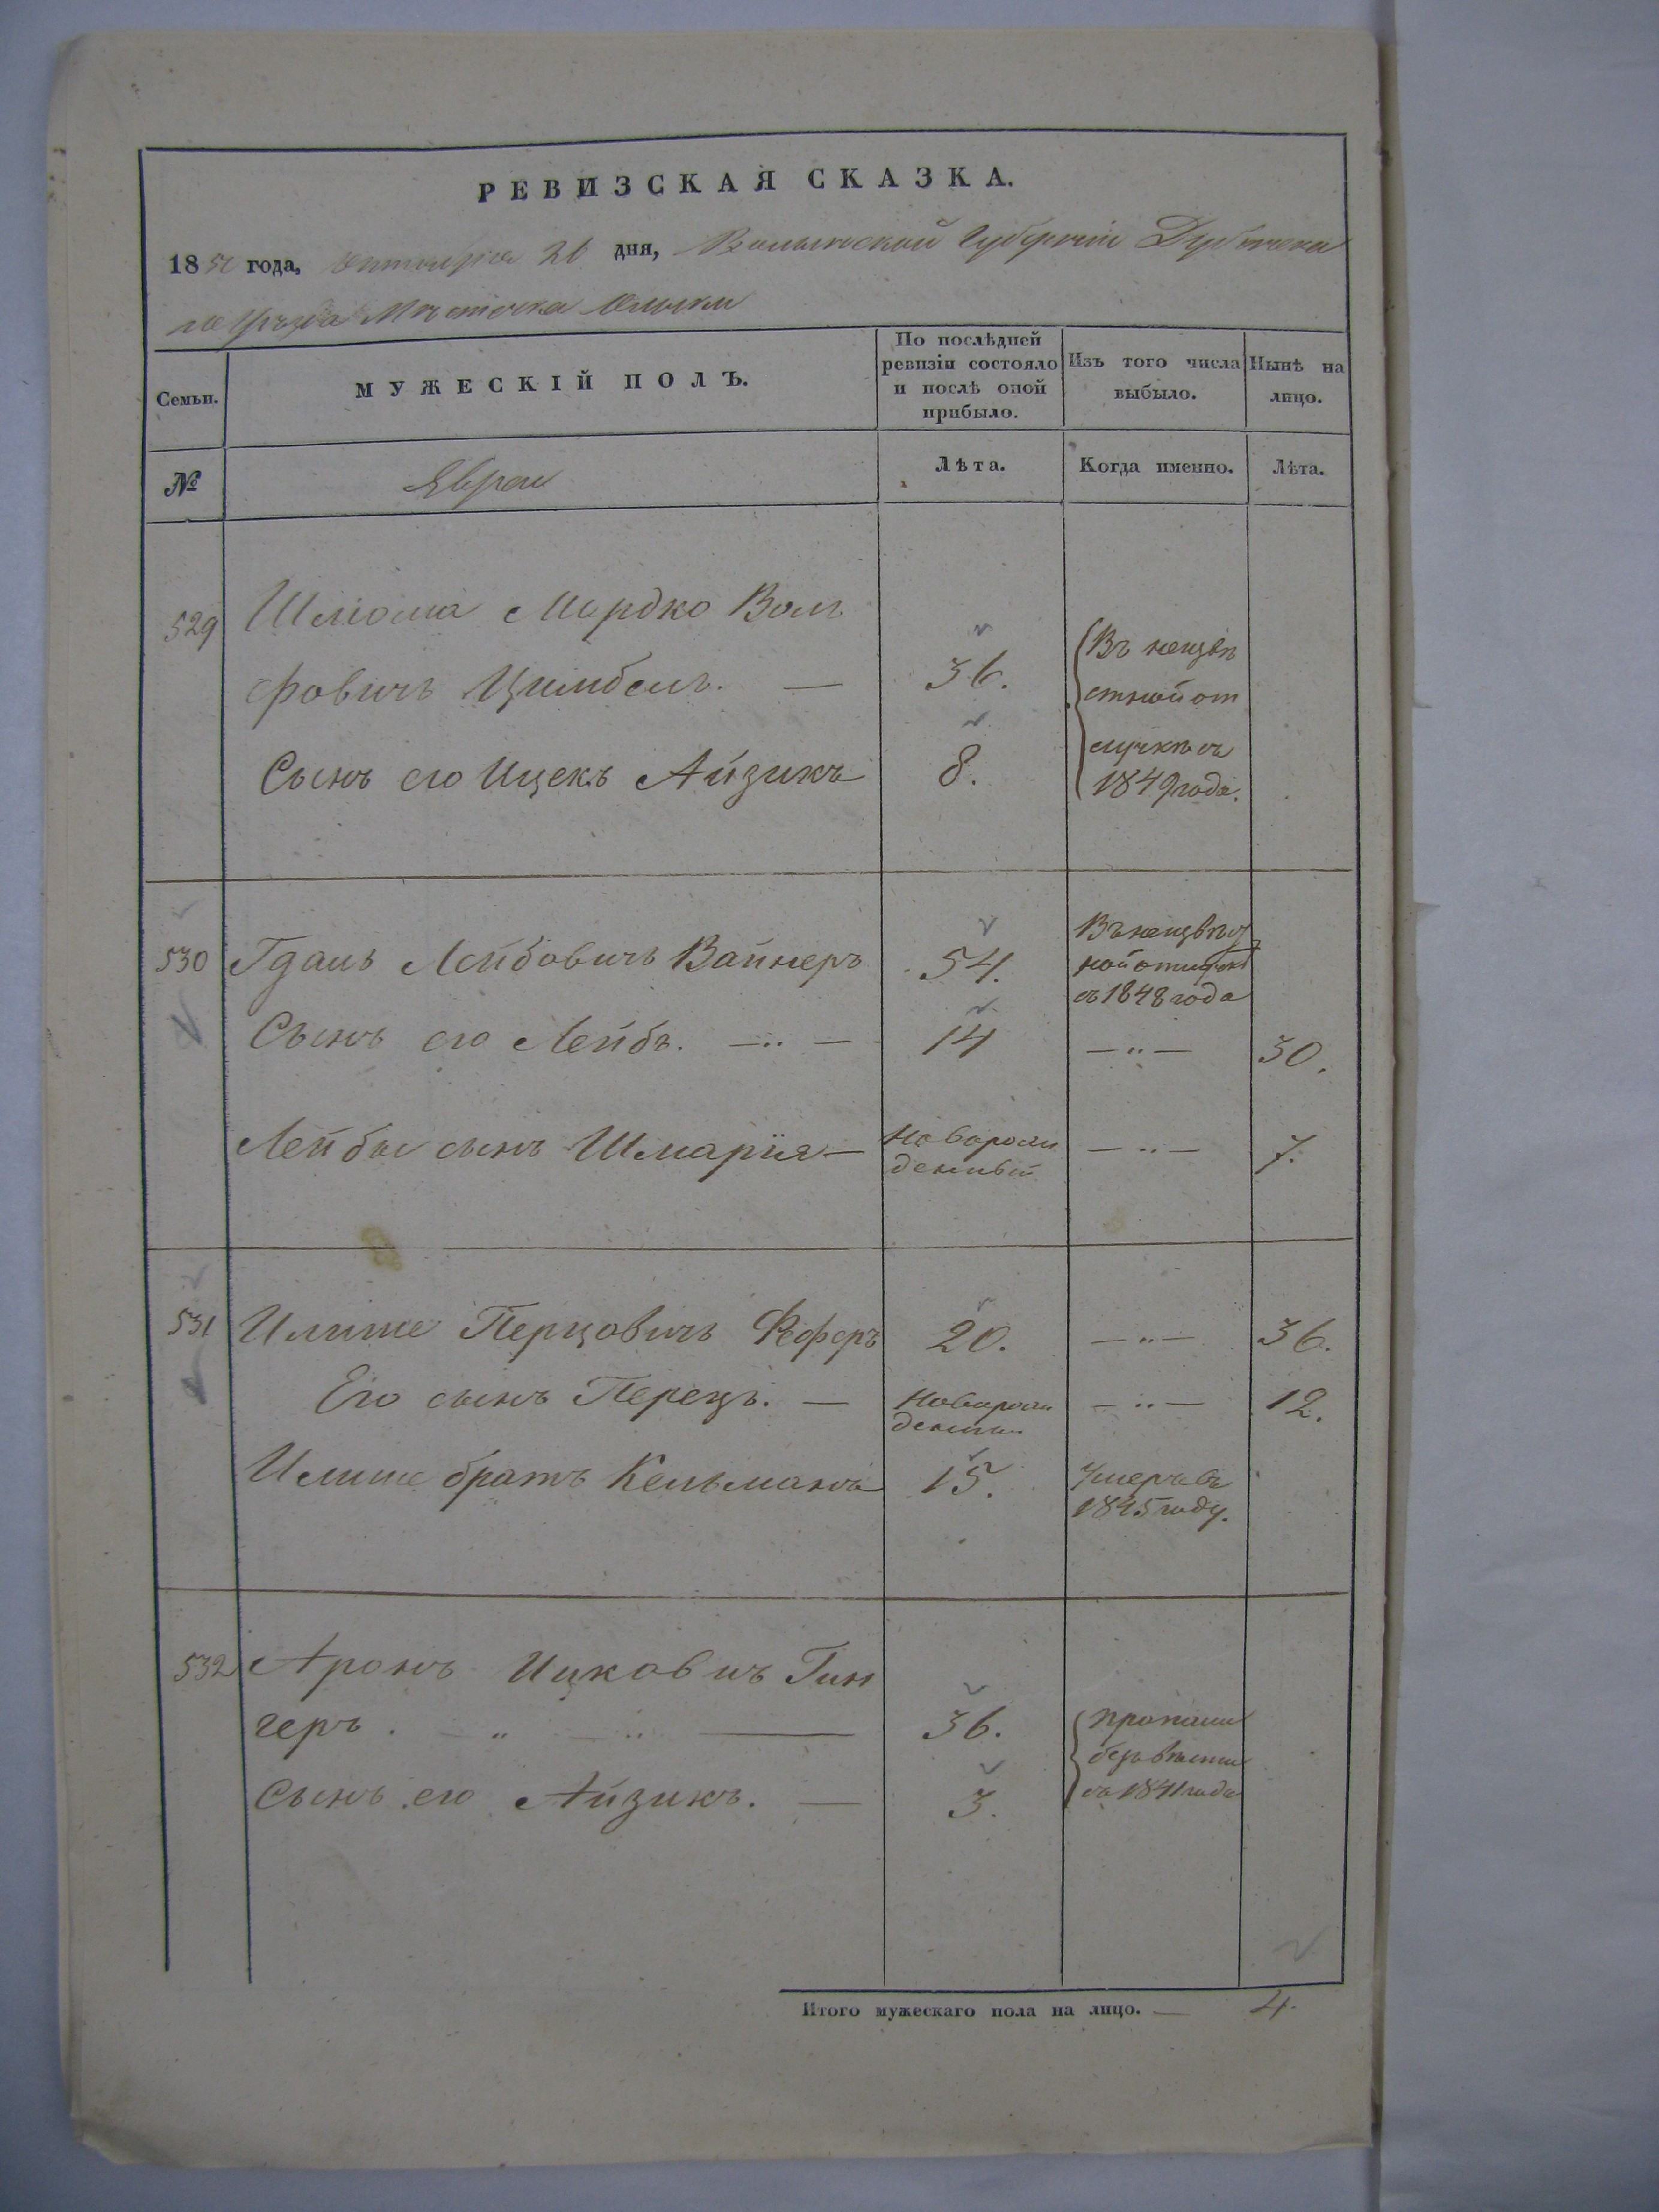 РЕВИЗСКАЯ СКАЗКА.
18 года, 26 дня, Волынской Губерніи Дубенска
го Уѣзда Мѣстечка Олыки
Семьи.
МУЖЕСКІЙ ПОЛЪ.
По послѣдней
ревизіи состояло
и послѣ оной
прибыло.
Изъ того числа
выбыло.
Нынѣ на
лицо.
№
Евреи
Лѣта.
Когда именно.
Лѣта.
529 Шліома Мордко Воль
фовичъ Цимбель. — 36. Въ неизвѣ
стной от
Сынъ его Ицекъ Айзикъ 8. лучкѣ съ
1849 года.
530 Гдаль Лейбовичъ Вайнеръ 54. Въ неизвѣст
ной отлучкѣ
съ 1848 года
Сынъ его Лейбъ. —"— 14 —"— 30.
Лейбы сынъ Шмарія — Наворож
денный —"— 7.
531 Илише Перцовичъ Феферъ 20. —"— 36.
Его сынъ Перецъ. — Наворож
денный —"— 12.
Илише братъ Кельманъ 15. Умеръ въ
1845 году.
532 Аронъ Ицковичъ Гин
геръ. —"—"— 36. пропали
безъ вѣсти
Сынъ его Айзикъ. — 3. съ 1841 года
Итого мужескаго пола на лицо. — 4.